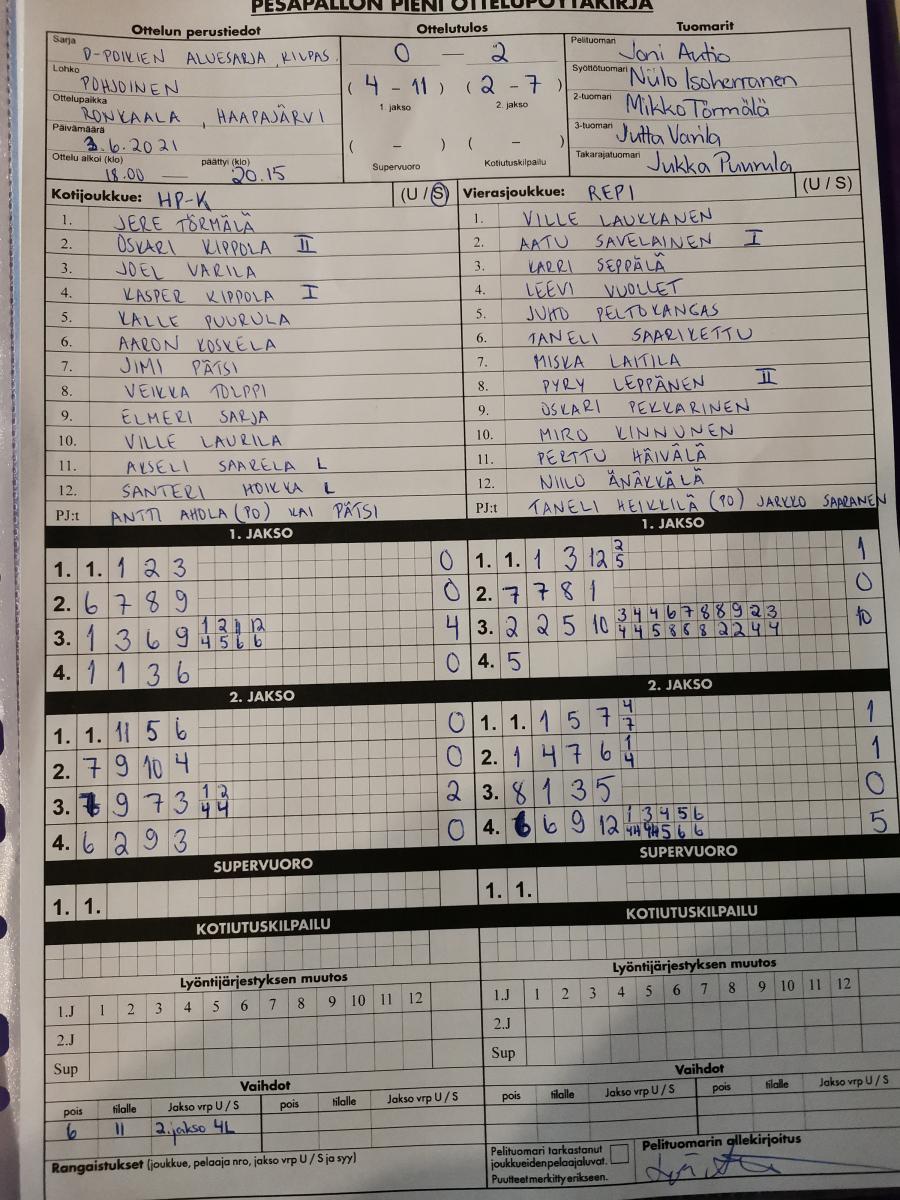 PESÄPALLON PIENI OTTELUPÖYTÄKIRJA
Ottelun perustiedot
Ottelutulos
Tuomarit
Sarja
D-POIKIEN ALUESARJA, KILPAS.
Lohko
POHJOINEN
Ottelupaikka
RONKAALA, HAAPAJÄRVI
Päivämäärä
3.6.2021
Ottelu alkoi (klo) päättyi (klo)
18.00 — 20.15
0 — 2
( 4 - 11 ) ( 2 - 7 )
1. jakso 2. jakso
( - ) ( - )
Supervuoro Kotiutuskilpailu
Pelituomari Joni Autio
Syöttötuomari Niilo Isoherranen
2-tuomari Mikko Törmälä
3-tuomari Jutta Varila
Takarajatuomari Jukka Puurula
Kotijoukkue: HP-K (U / S)
1. JERE TÖRMÄLÄ
2. OSKARI KIPPOLA II
3. JOEL VARILA
4. KASPER KIPPOLA I
5. KALLE PUURULA
6. AARON KOSKELA
7. JIMI PÄTSI
8. VEIKKA TOLPPI
9. ELMERI SARJA
10. VILLE LAURILA
11. AKSELI SAARELA L
12. SANTERI HOIKKA L
PJ:t ANTTI AHOLA (PO) KAI PÄTSI
Vierasjoukkue: REPI (U / S)
1. VILLE LAUKKANEN
2. AATU SAVELAINEN I
3. KARRI SEPPÄLÄ
4. LEEVI VUOLLET
5. JUHO PELTOKANGAS
6. TANELI SAARIKETTU
7. MISKA LAITILA
8. PYRY LEPPÄNEN II
9. OSKARI PEKKARINEN
10. MIRO KINNUNEN
11. PERTTU HÄIVÄLÄ
12. NIILO ÄNÄKKÄLÄ
PJ:t TANELI HEIKKILÄ (PO) JARKKO SAARANEN
1. JAKSO
1. 1. 1 2 3 0
2. 6 7 8 9 0
3. 1 3 6 9 1 2 11 12 4
4 5 6 6
4. 1 1 3 6 0
1. JAKSO
1. 1. 1 3 12 2 1
5
2. 7 7 8 1 0
3. 2 2 5 10 3 4 4 6 7 8 8 9 2 3 10
4 4 5 8 6 8 2 2 4 4
4. 5
2. JAKSO
1. 1. 11 5 6 0
2. 7 9 10 4 0
3. 9 7 3 1 2 2
4 4
4. 6 2 9 3 0
2. JAKSO
1. 1. 1 5 7 4 1
7
2. 1 4 7 6 1 1
4
3. 8 1 3 5 0
4. 6 6 9 12 1 3 4 5 6 5
5 6 6
SUPERVUORO
1. 1.
SUPERVUORO
1. 1.
KOTIUTUSKILPAILU
KOTIUTUSKILPAILU
Lyöntijärjestyksen muutos
1.J 1 2 3 4 5 6 7 8 9 10 11 12
2.J
Sup
Lyöntijärjestyksen muutos
1.J 1 2 3 4 5 6 7 8 9 10 11 12
2.J
Sup
Vaihdot
pois tilalle Jakso vrp U / S pois tilalle Jakso vrp U / S
6 11 2.jakso 4L
Vaihdot
pois tilalle Jakso vrp U / S pois tilalle Jakso vrp U / S
Rangaistukset (joukkue, pelaaja nro, jakso vrp U / S ja syy)
Pelituomari tarkastanut
joukkueiden pelaajaluvat.
Puutteet merkitty erikseen.
Pelituomarin allekirjoitus